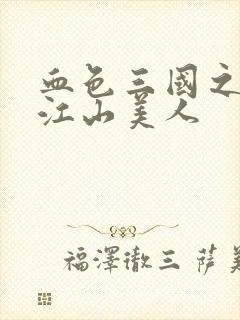 血色三國之
江山美人
福澤徹三 薩美